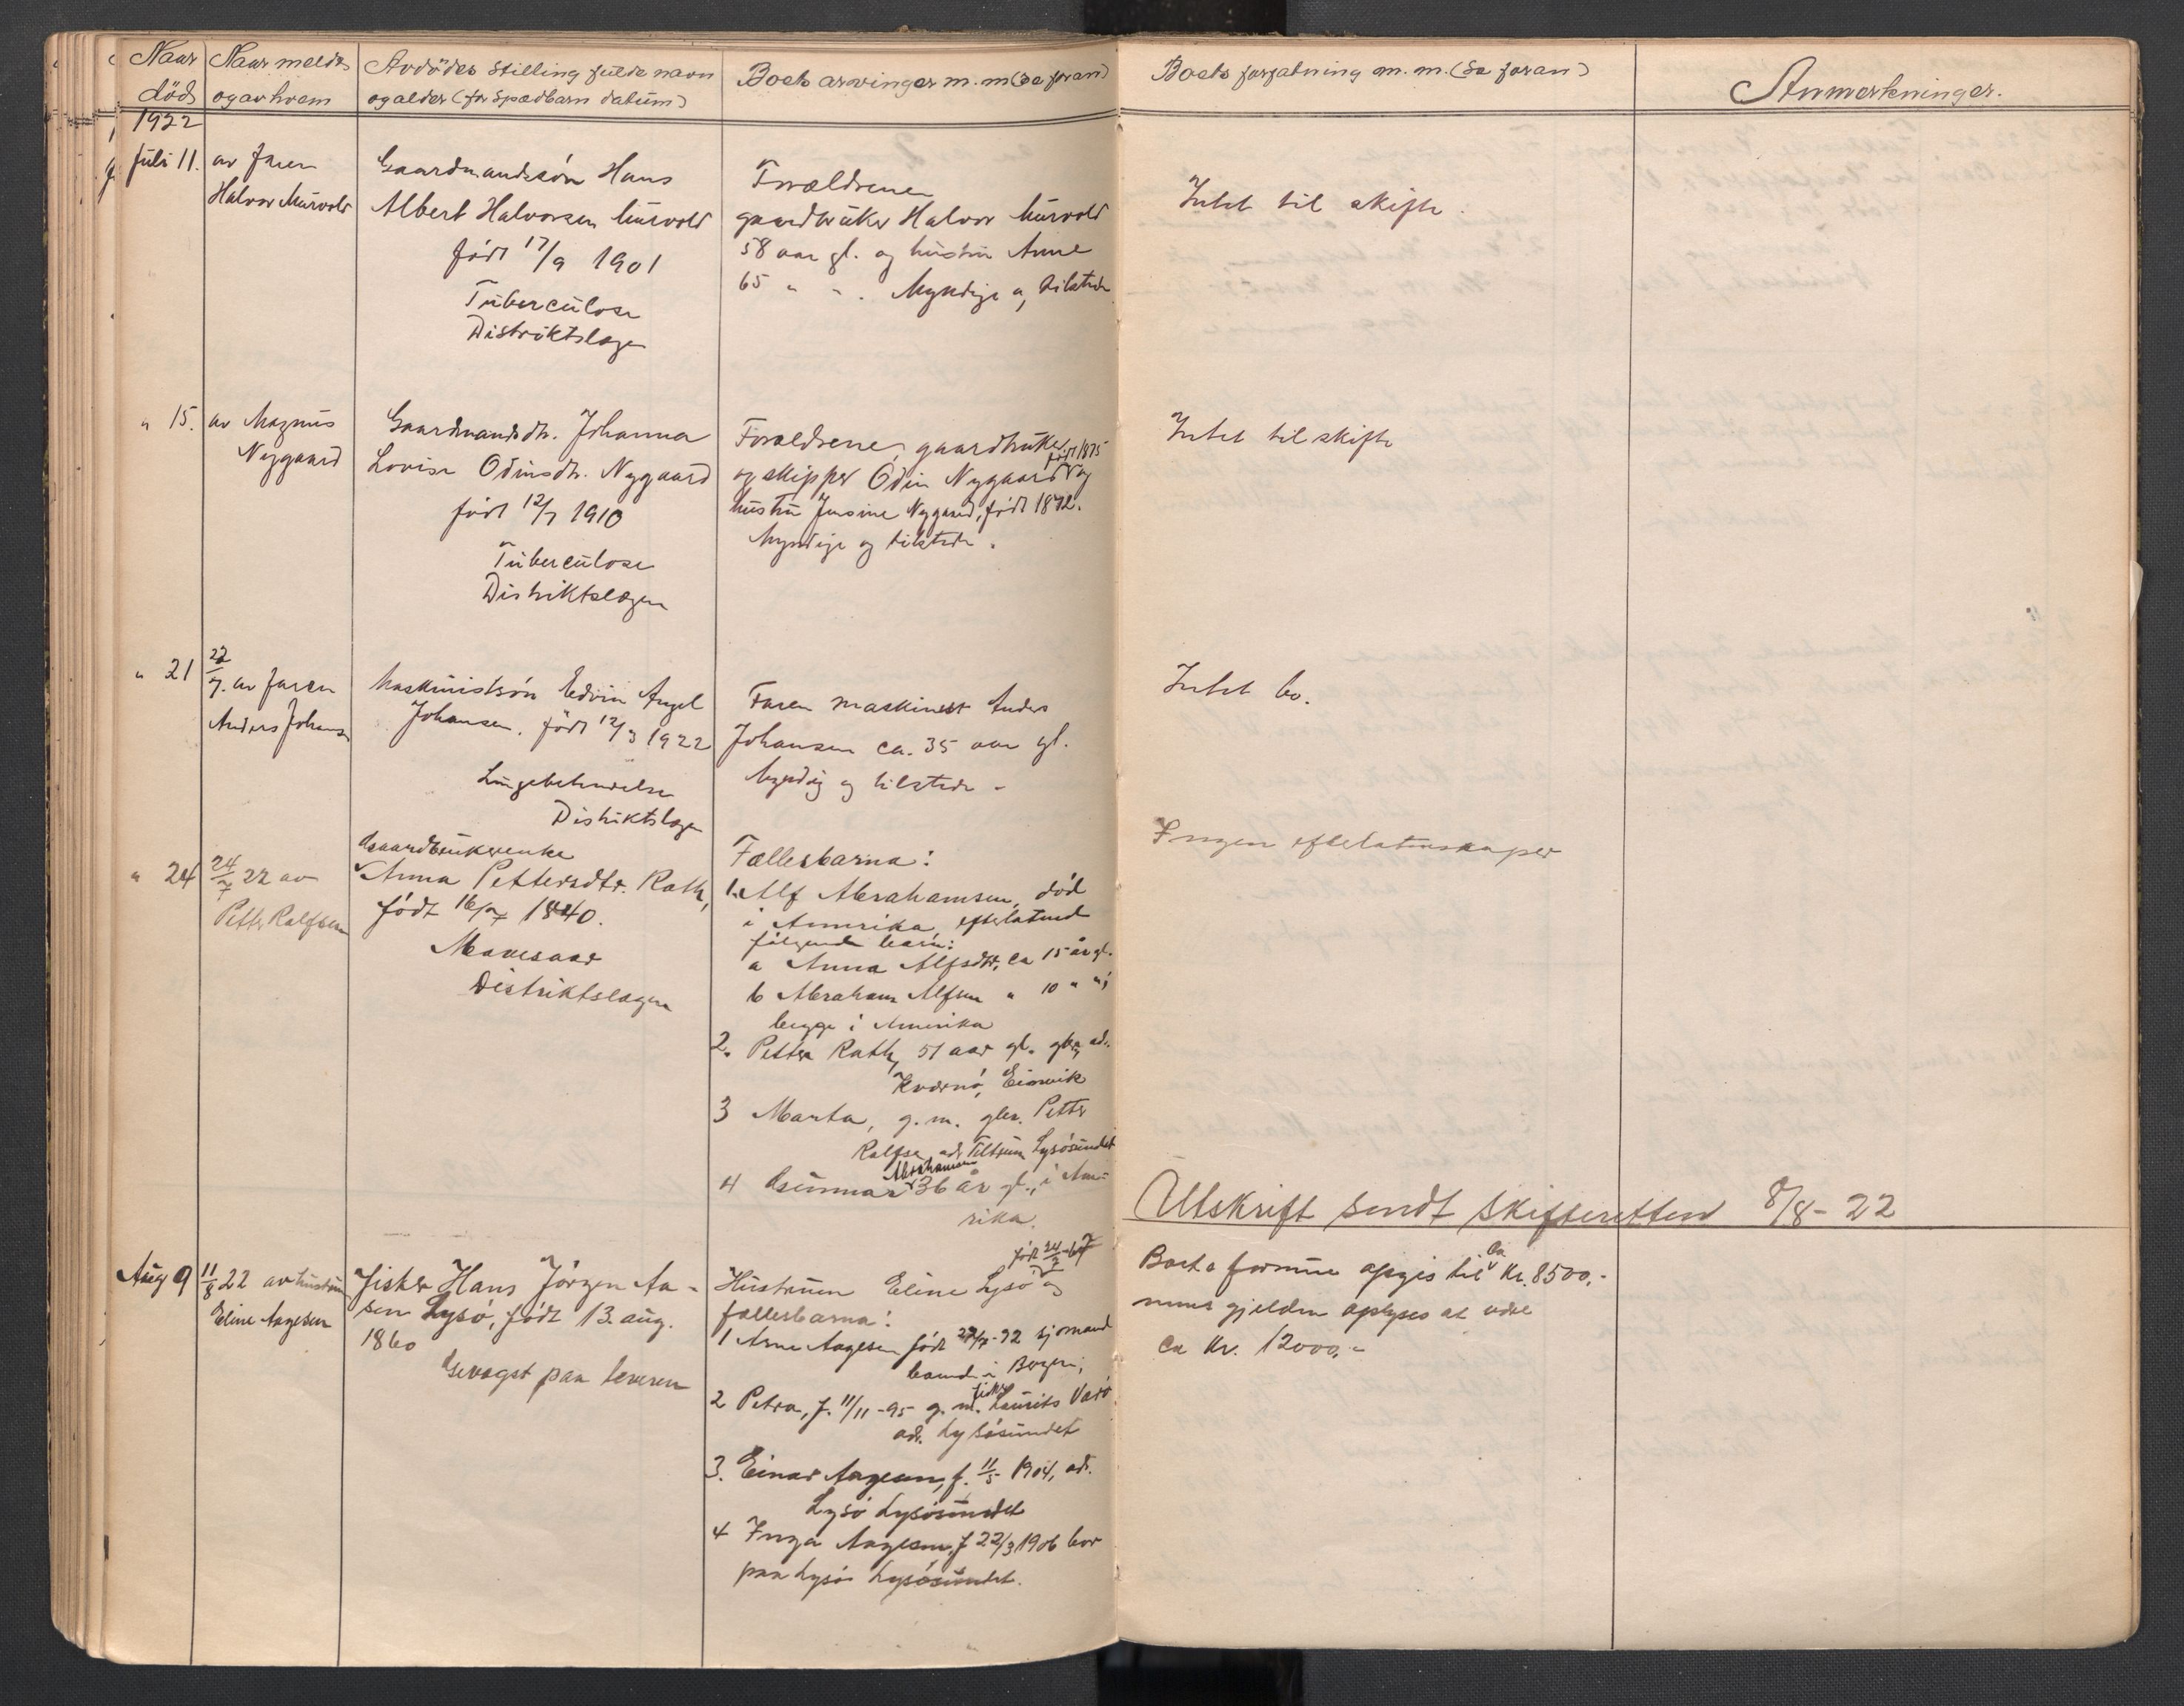 Naar død
Naar meldt og av hvem
Avdødes stilling fulde navn og alder (for spædbarn datum)
Boets arvinger m. m (se foran)
Boets forfatning m. m. (Se foran)
Anmerkninger.
1922
Juli 11.
av faren
Halvor Murvold
Gaardmandssøn Hans
Albert Halvorsen Murvold
født 17/9 1901
Tuberculose
Distriktslægen
Forældrene
gaardbruker Halvor Murvold
58 aar gl. og hustru Anne
65 " " . Myndige og tilstede
Intet til skifte.
" 15.
av Magnus
Nygaard
Gaardmandsdtr. Johanna
Lovise Odinsdtr. Nygaard
født 12/7 1910
Tuberculose
Distriktslægen
Forældrene, gaardbruker
og skipper Odin Nygaard født 1875 og
hustru Jensine Nygaard, født 1872.
Myndige og tilstede.
Intet til skifte
" 21
22/7. av faren
Anders Johansen
Maskinistsøn Edvin Angel
Johansen. født 12/3 1922
Lungebetendelse
Distriktslægen
Faren maskinist Anders
Johansen ca. 35 aar gl.
Myndig og tilstede -
Intet bo.
" 24
24/7 22 av
Petter Ralfsen
Gaardbrukerenke
Anna Pettersdtr. Rath,
født 16/7 1840.
Mavesaar
Distriktslægen
Fællesbarna:
1. Alf Abrahamsen, død
i Amerika, efterlatend
følgende barn:
a Anna Alfsdtr, ca 15 år gl.
b Abraham Alfsen " 10 " ";
begge i Amerika
2. Petter Rath, 51 aar gl. gbr, adr.
Kværnø, Eidsvik
3 Marta, g. m. gbr. Petter
Ralfsen, adr Teltrum Lysøsundet
4 Gunnar Abrahamsen 36 år gl., i Ame-
rika.
Ingen efterlatenskaper
Utskrift sendt skifteretten 8/8 - 22
Aug 9
11/8 22 av hustruen
Eline Aagesen
Fisker Hans Jørgen Aa-
sen Lysø, født 13. aug.
1860
Gevægst paa leveren
Hustruen Eline Lysø født 24/2-67 og
fællesbarna:
1 Arne Aagesen født 27/7-92 sjømand
bound i Bergen,
2 Petra, f. 11/11-95 g. m. fisker Laurits Varø
adr. Lysøsundet
3. Einar Aagesen, f. 11/5 1904, adr.
Lysø Lysøsundet
4 Inga Aagesen, f 22/3 1906 bor
paa Lysø Lysøsundet.
Boets formue opgis til ca Kr. 8500,-
mens gjelden oplyses at utdre
ca Kr. 12000,-